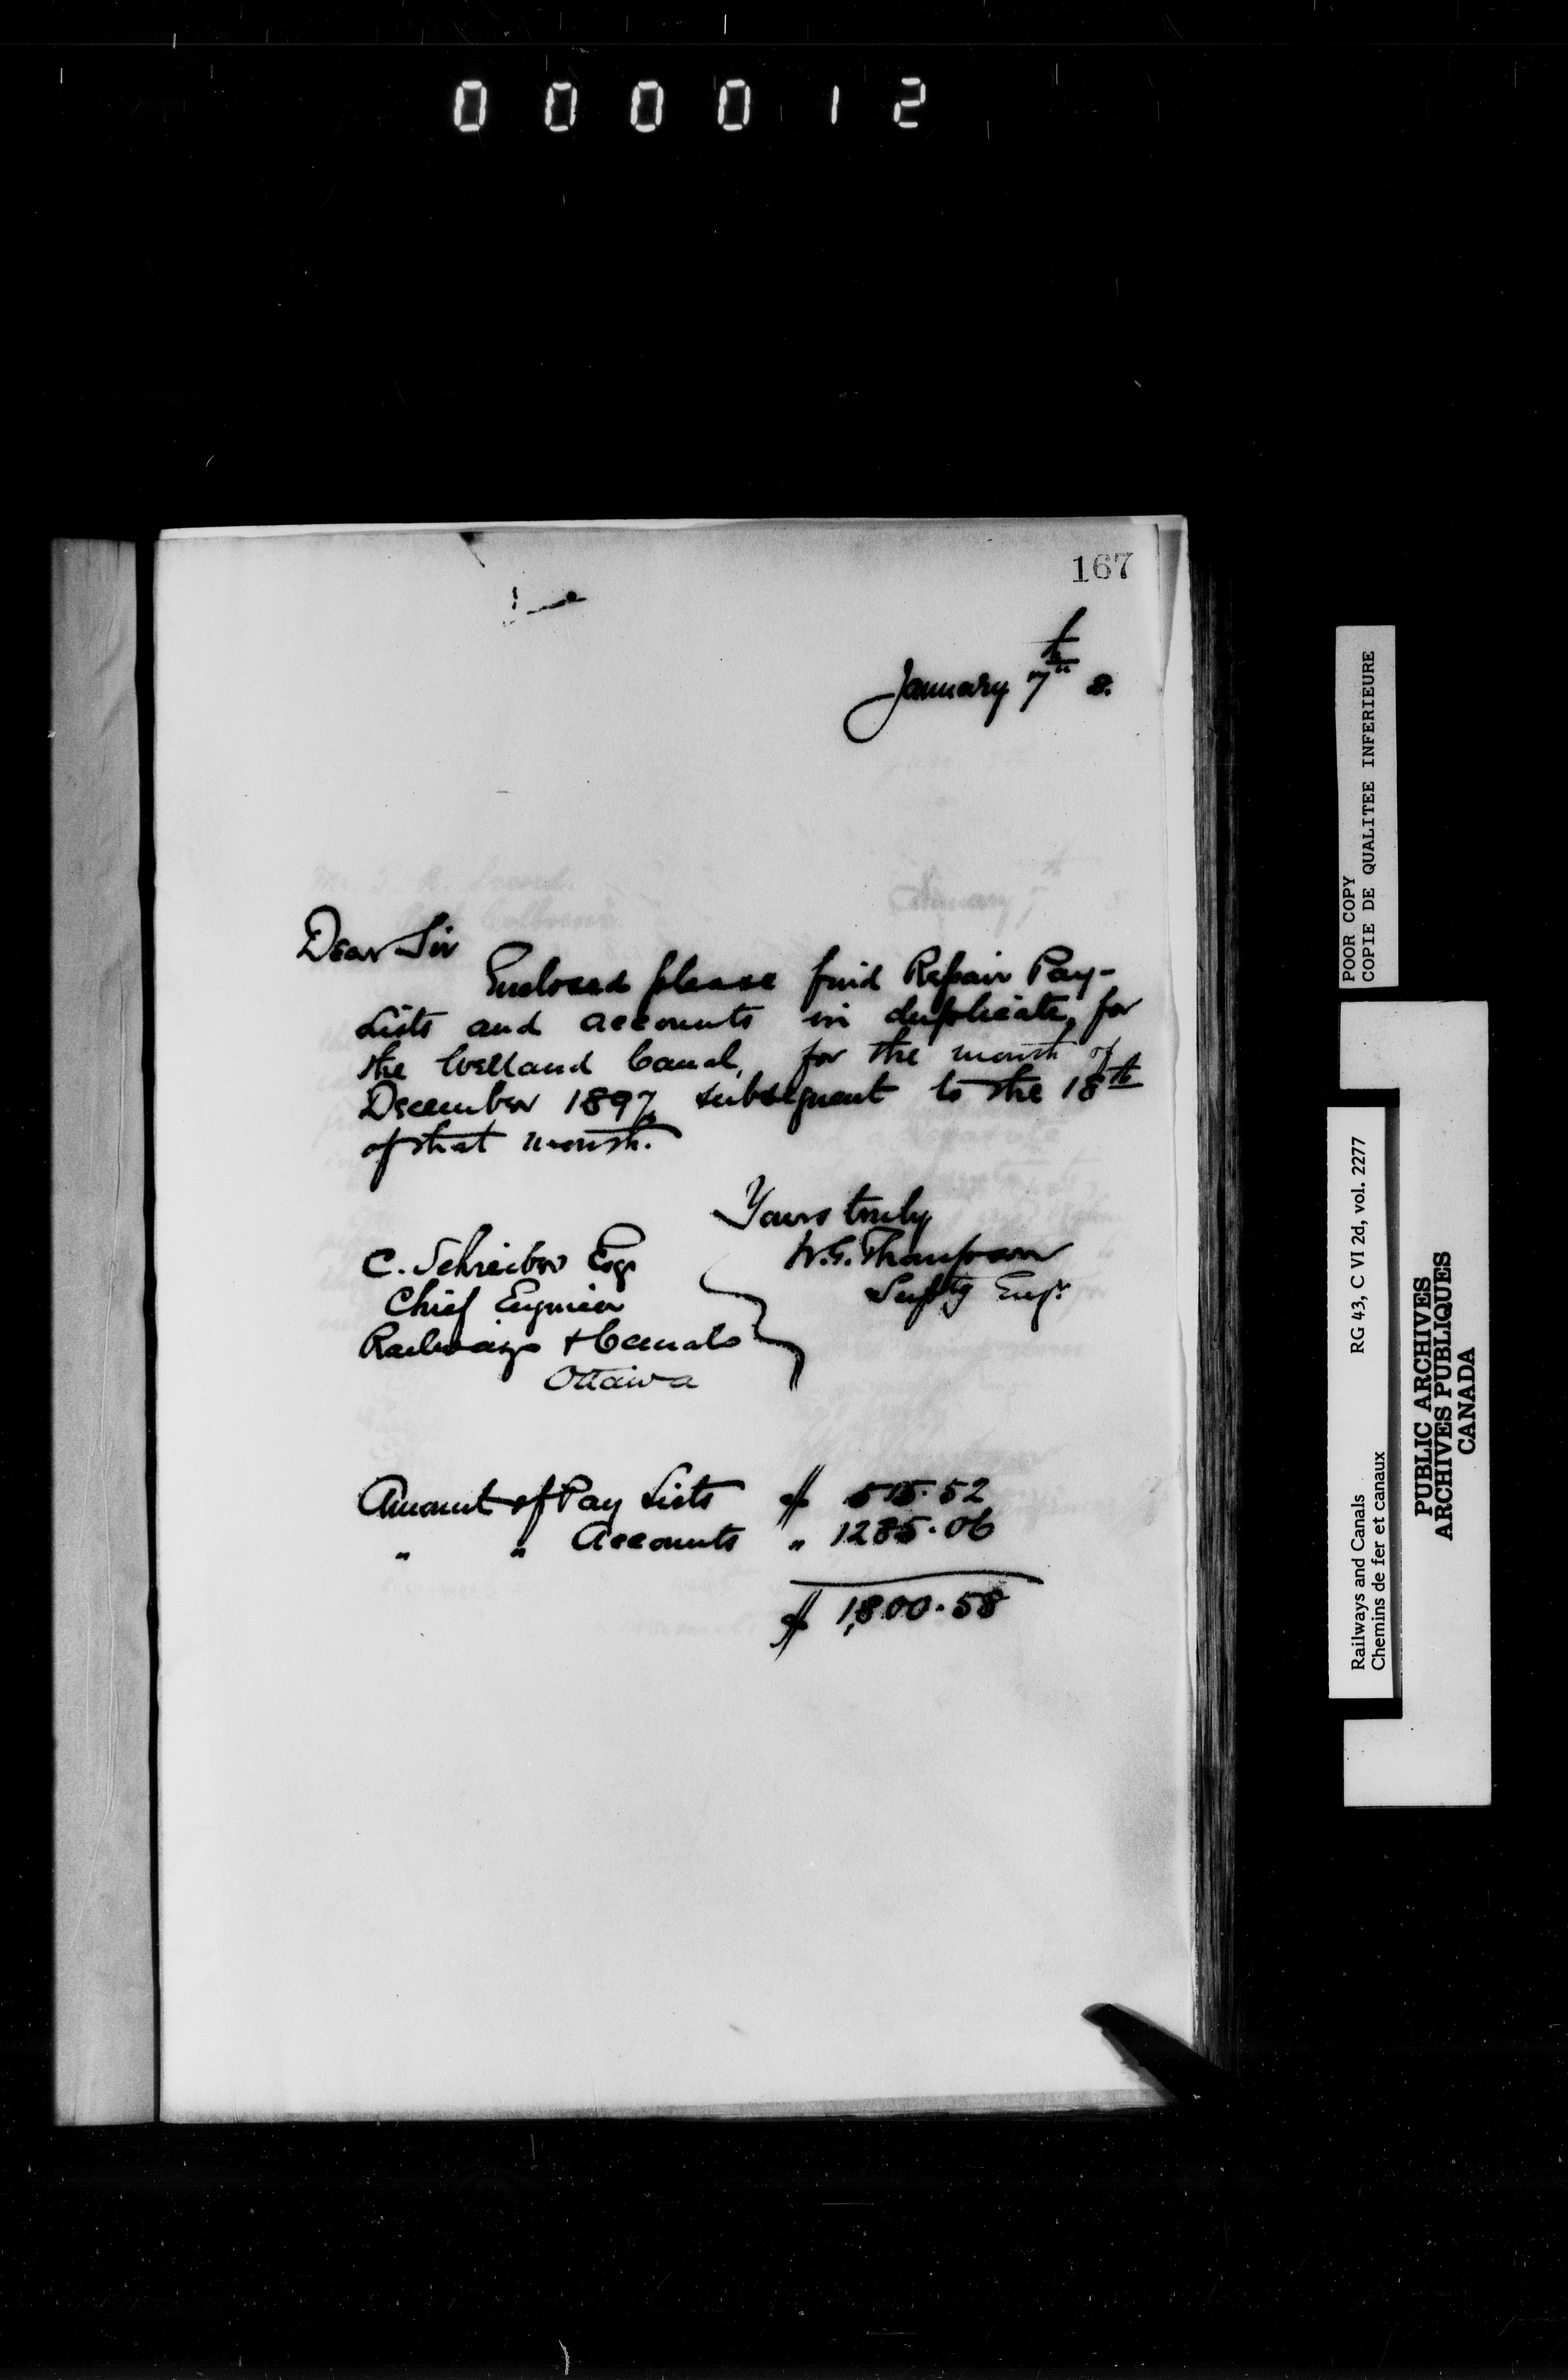 000012
167
January 7th 8.
Dear Sir
Enclosed please find Repair Pay-
Lists and accounts in duplicate, for
the Welland Canal, for the month of
December 1897, subsequent to the 18th
of that month.
Yours truly
W.G. Thompson
Suptg Engr.
C. Schreiber Esq
Chief Engineer
Railways & Canals
Ottawa
Amount of Pay Lists $ 515.52
" " Accounts " 1285.06
$ 1,800.58
POOR COPY
COPIE DE QUALITEE INFERIEURE
RG 43, C VI 2d, vol. 2277
Railways and Canals
Chemins de fer et canaux
PUBLIC ARCHIVES
ARCHIVES PUBLIQUES
CANADA